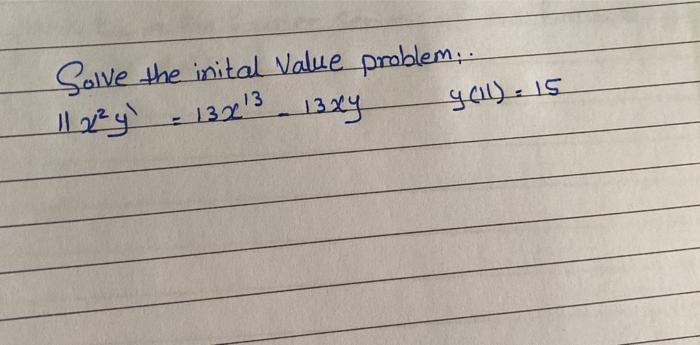 Solve the inital Value problem:.
11 x² y` = 13x¹³ - 13xy y(11) = 15